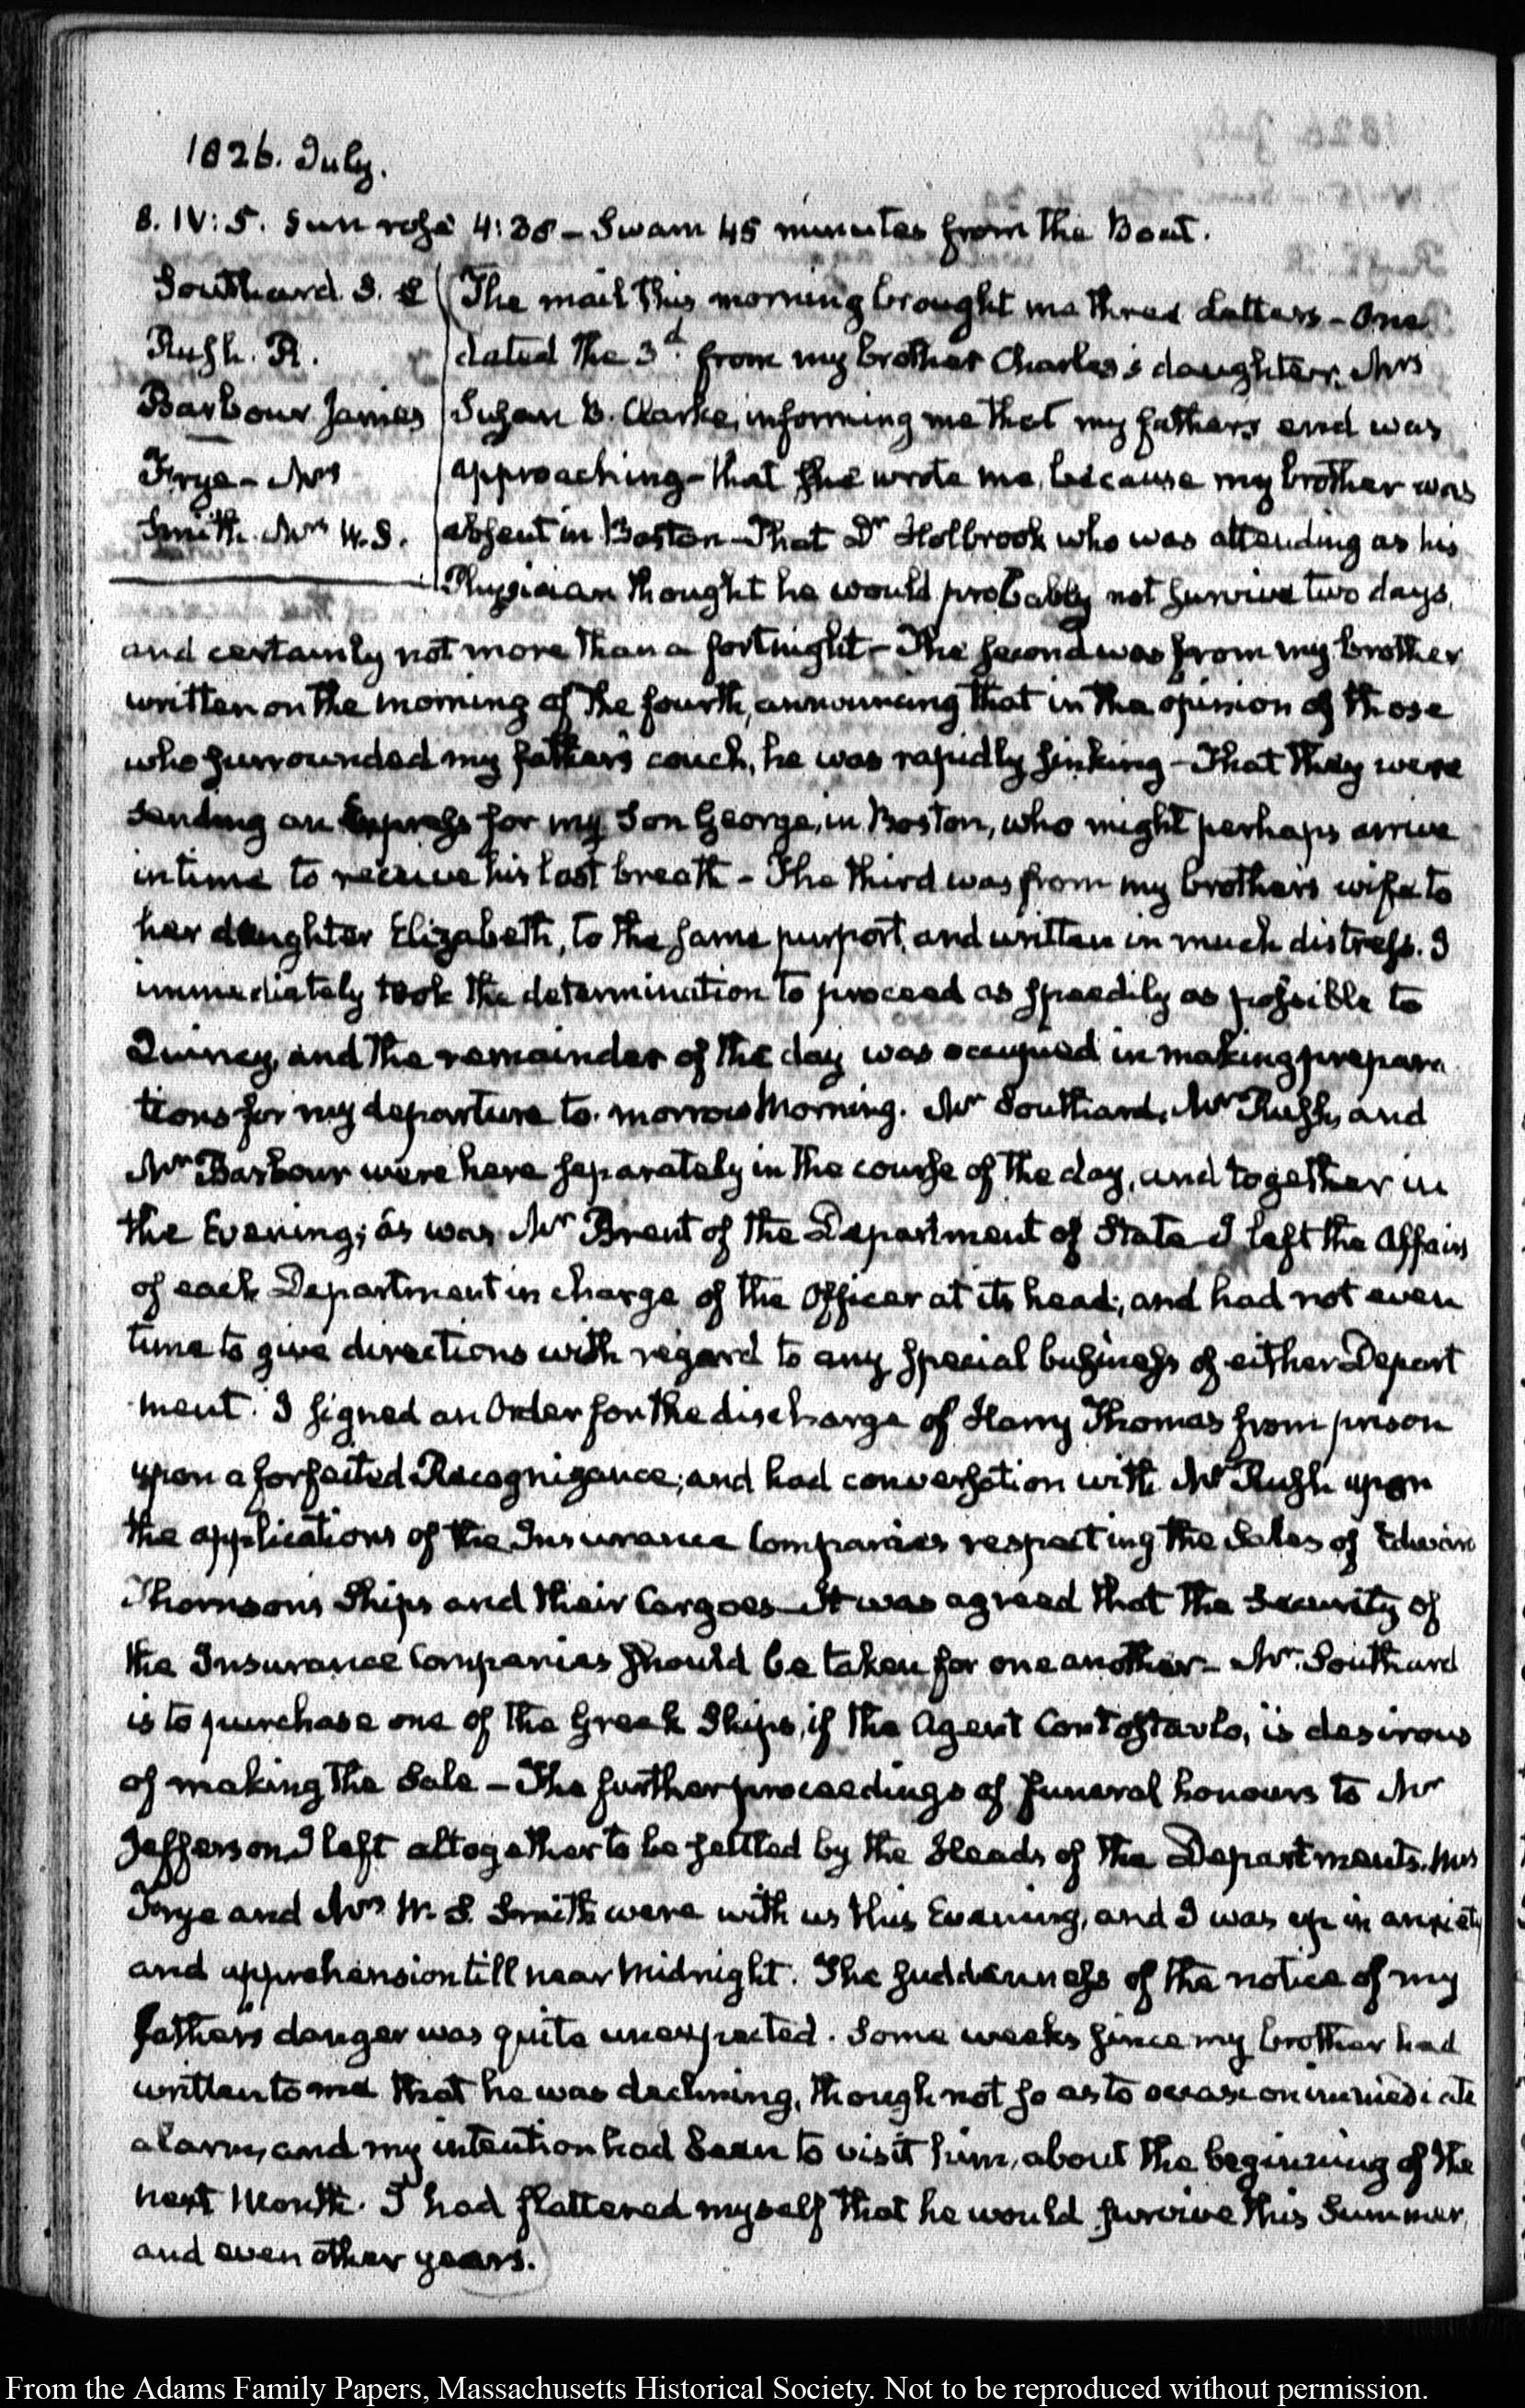 1826. July.
8. IV: 5. Sun rose 4:38 – Swam 45 minutes from the Boat.
Southard. S. L
Rush. R.
Barbour James
Frye – Mrs
Smith. Mrs W. S.
The mail this morning brought me three Letters – One
dated the 3d. from my brother Charles's daughter, Mrs
Susan B. Clarke, informing me that my father's end was
approaching – that she wrote me, because my brother was
absent in Boston – That Dr Holbrook who was attending as his
Physician thought he would probably not survive two days,
and certainly not more than a fortnight – The second was from my brother
written on the morning of the fourth, announcing that in the opinion of those
who surrounded my father's couch, he was rapidly sinking – That they were
sending an Express for my Son George, in Boston, who might perhaps arrive
in time to receive his last breath – The third was from my brother's wife to
her daughter Elizabeth, to the same purport, and written in much distress. I
immediately took the determination to proceed as speedily as possible to
Quincy, and the remainder of the day was occupied in making prepara
tions for my departure to-morrow Morning. Mr Southard, Mr Rush, and
Mr Barbour were here separately in the course of the day, and together in
the Evening; as was Mr Brent of the Department of State – I left the Affairs
of each Department in charge of the Officer at its head; and had not even
time to give directions with regard to any special business of either Depart
ment. I signed an Order for the discharge of Harry Thomas from prison
upon a forfeited Recognizance; and had conversation with Mr Rush upon
the applications of the Insurance Companies respecting the Sales of Edward
Thomson's Ships and their Cargoes – It was agreed that the Security of
the Insurance Companies should be taken for one another – Mr. Southard
is to purchase one of the Greek Ships, if the Agent Contostavlo, is desirous
of making the Sale – The further proceedings of funeral honours to Mr
Jefferson, I left altogether to be settled by the Heads of the Departments. Mrs
Frye and Mrs W. S. Smith were with us this Evening, and I was up in anxiety
and apprehension till near Midnight. The suddenness of the notice of my
father's danger was quite unexpected. Some weeks since my brother had
written to me that he was declining, though not so as to occasion immediate
alarm, and my intention had been to visit him, about the beginning of the
next Month. I had flattered myself that he would survive this Summer,
and even other years.
From the Adams Family Papers, Massachusetts Historical Society. Not to be reproduced without permission.